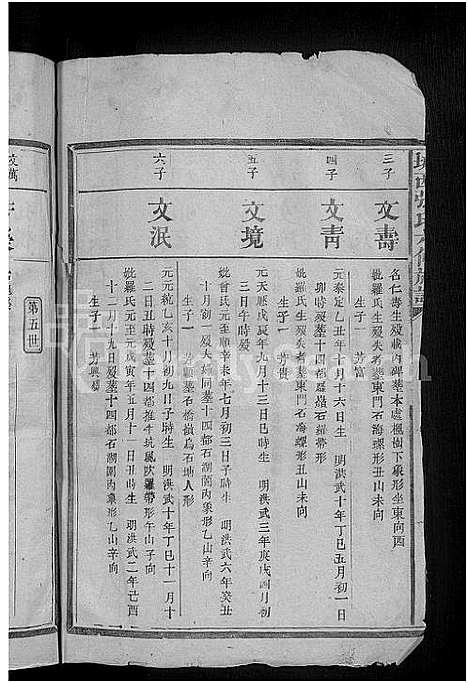 三子
文壽
名仁壽生歿載內碑墓本處楓樹下象形坐東向西
妣羅氏生歿失考墓東門石海螺形丑山未向
生子一 芳富
四子
文靑
元泰定乙丑年十月十六日生 明洪武十年丁巳五月初一日
卯時歿墓十四都羅嶺石羅帶形
妣羅氏生歿失考墓東門石海螺形丑山未向
生子一 芳貴
五子
文境
元天厯戊辰年九月十三日巳時生 明洪武三年庚戌四月初
三日午時歿
妣曾氏元至順辛未年七月初三日子時生 明洪武六年癸丑
十月初一歿夫婦同墓十四都石湖閣內象形乙山辛向
生子一 芳顯墓石橋嶺烏石地人形
六子
文泯
元元統乙亥十月初九日子時生 明洪武十年丁巳十一月十
二日丑時歿墓十四都推車坑鳳吹羅帶形午山子向
妣羅氏元至元戊寅年五月十一日丑時生 明洪武二年己酉
十二月十九日歿墓十四都石湖閣內象形乙山辛向
生子一 芳興
第五世